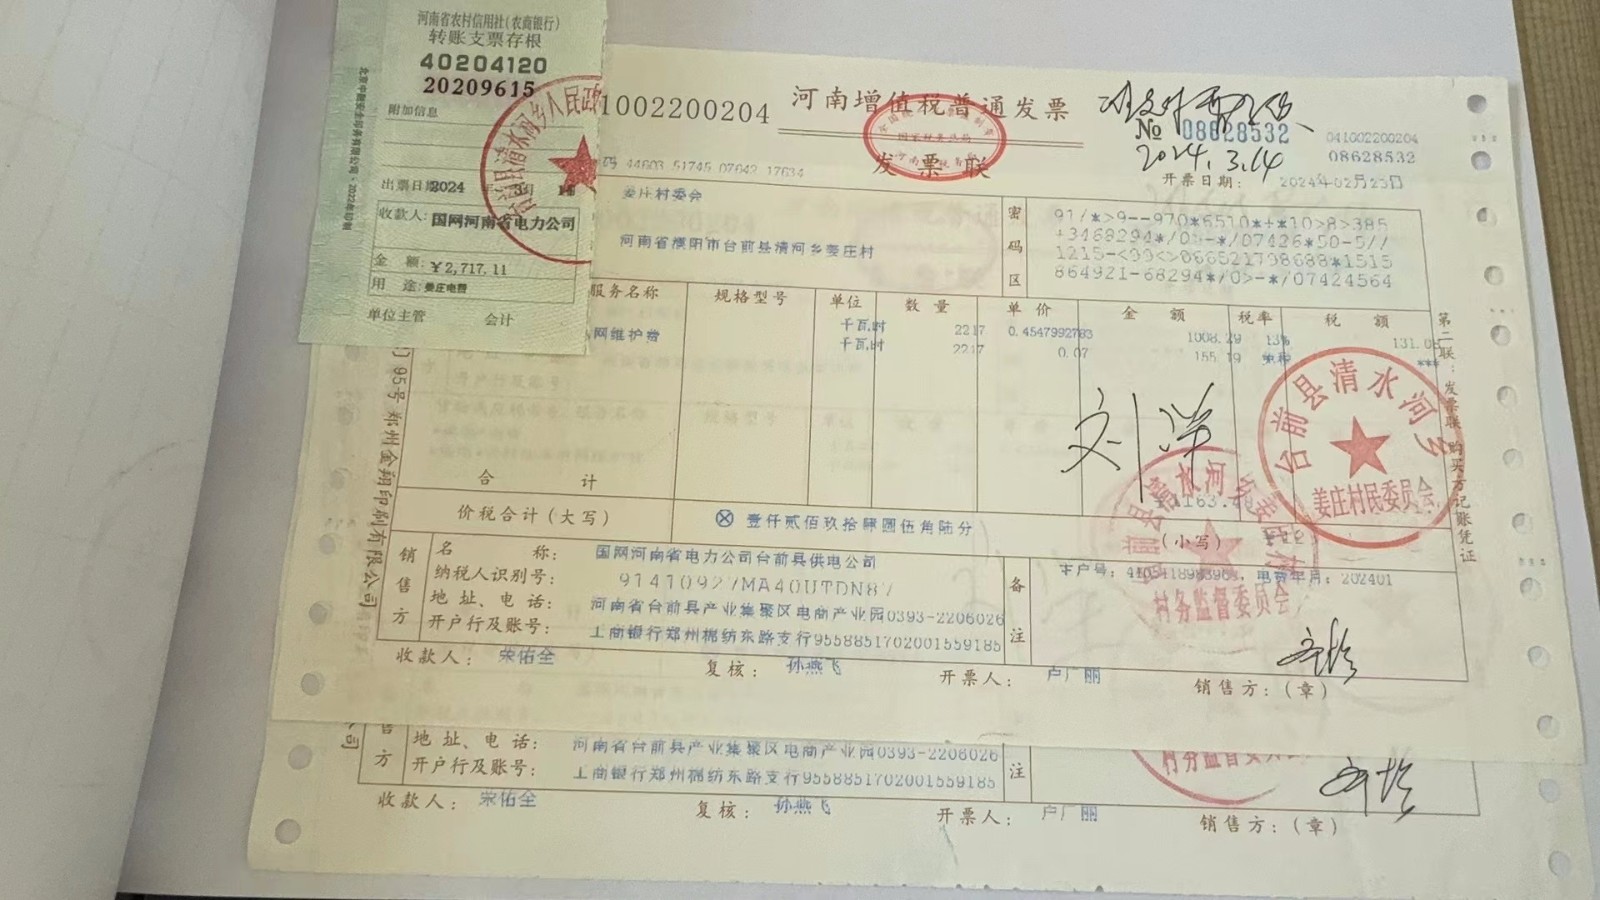 河南省农村信用社(农商银行)
转账支票存根
40204120
20209615
附加信息
出票日期2024年3月14
收款人:国网河南省电力公司
金 额:¥2,717.11
用 途:姜庄电费
单位主管 会计
北京中融安全印务有限公司·2022年印制
1002200204
河南增值税普通发票
发票联
№ 08628532
2024.3.14
041002200204
08628532
开票日期: 2024年02月23日
码 44603 51745 07642 17634
姜庄村委会
河南省濮阳市台前县清河乡姜庄村
密码区
91/*>9--970*6510*+*10>8>385
864921-68294*/0>-*/07424564
服务名称 规格型号 单位 数量 单价 金额 税率 税额
千瓦时 2217 0.4547992783 1008.29 13% 131.08
网维护费 千瓦时 2217 0.07 155.19 免税 ***
合计
刘洋
价税合计(大写) ⊗ 壹仟贰佰玖拾肆圆伍角陆分 (小写)
销售方
名 称: 国网河南省电力公司台前县供电公司
纳税人识别号: 91410927MA40UTDN87
地址、电话: 河南省台前县产业集聚区电商产业园0393-2206026
开户行及账号: 工商银行郑州棉纺东路支行9558851702001559185
备注
电费年月:202401
收款人: 荣佑全 复核: 孙燕飞 开票人: 卢广丽 销售方:(章)
第二联:发票联 购买方记账凭证
台前县清水河乡
姜庄村民委员会
村务监督委员会
95号 郑州金翔印刷有限公司
售方
地址、电话: 河南省台前县产业集聚区电商产业园0393-2206026
开户行及账号: 工商银行郑州棉纺东路支行9558851702001559185
注
收款人: 荣佑全 复核: 孙燕飞 开票人: 卢广丽 销售方:(章)